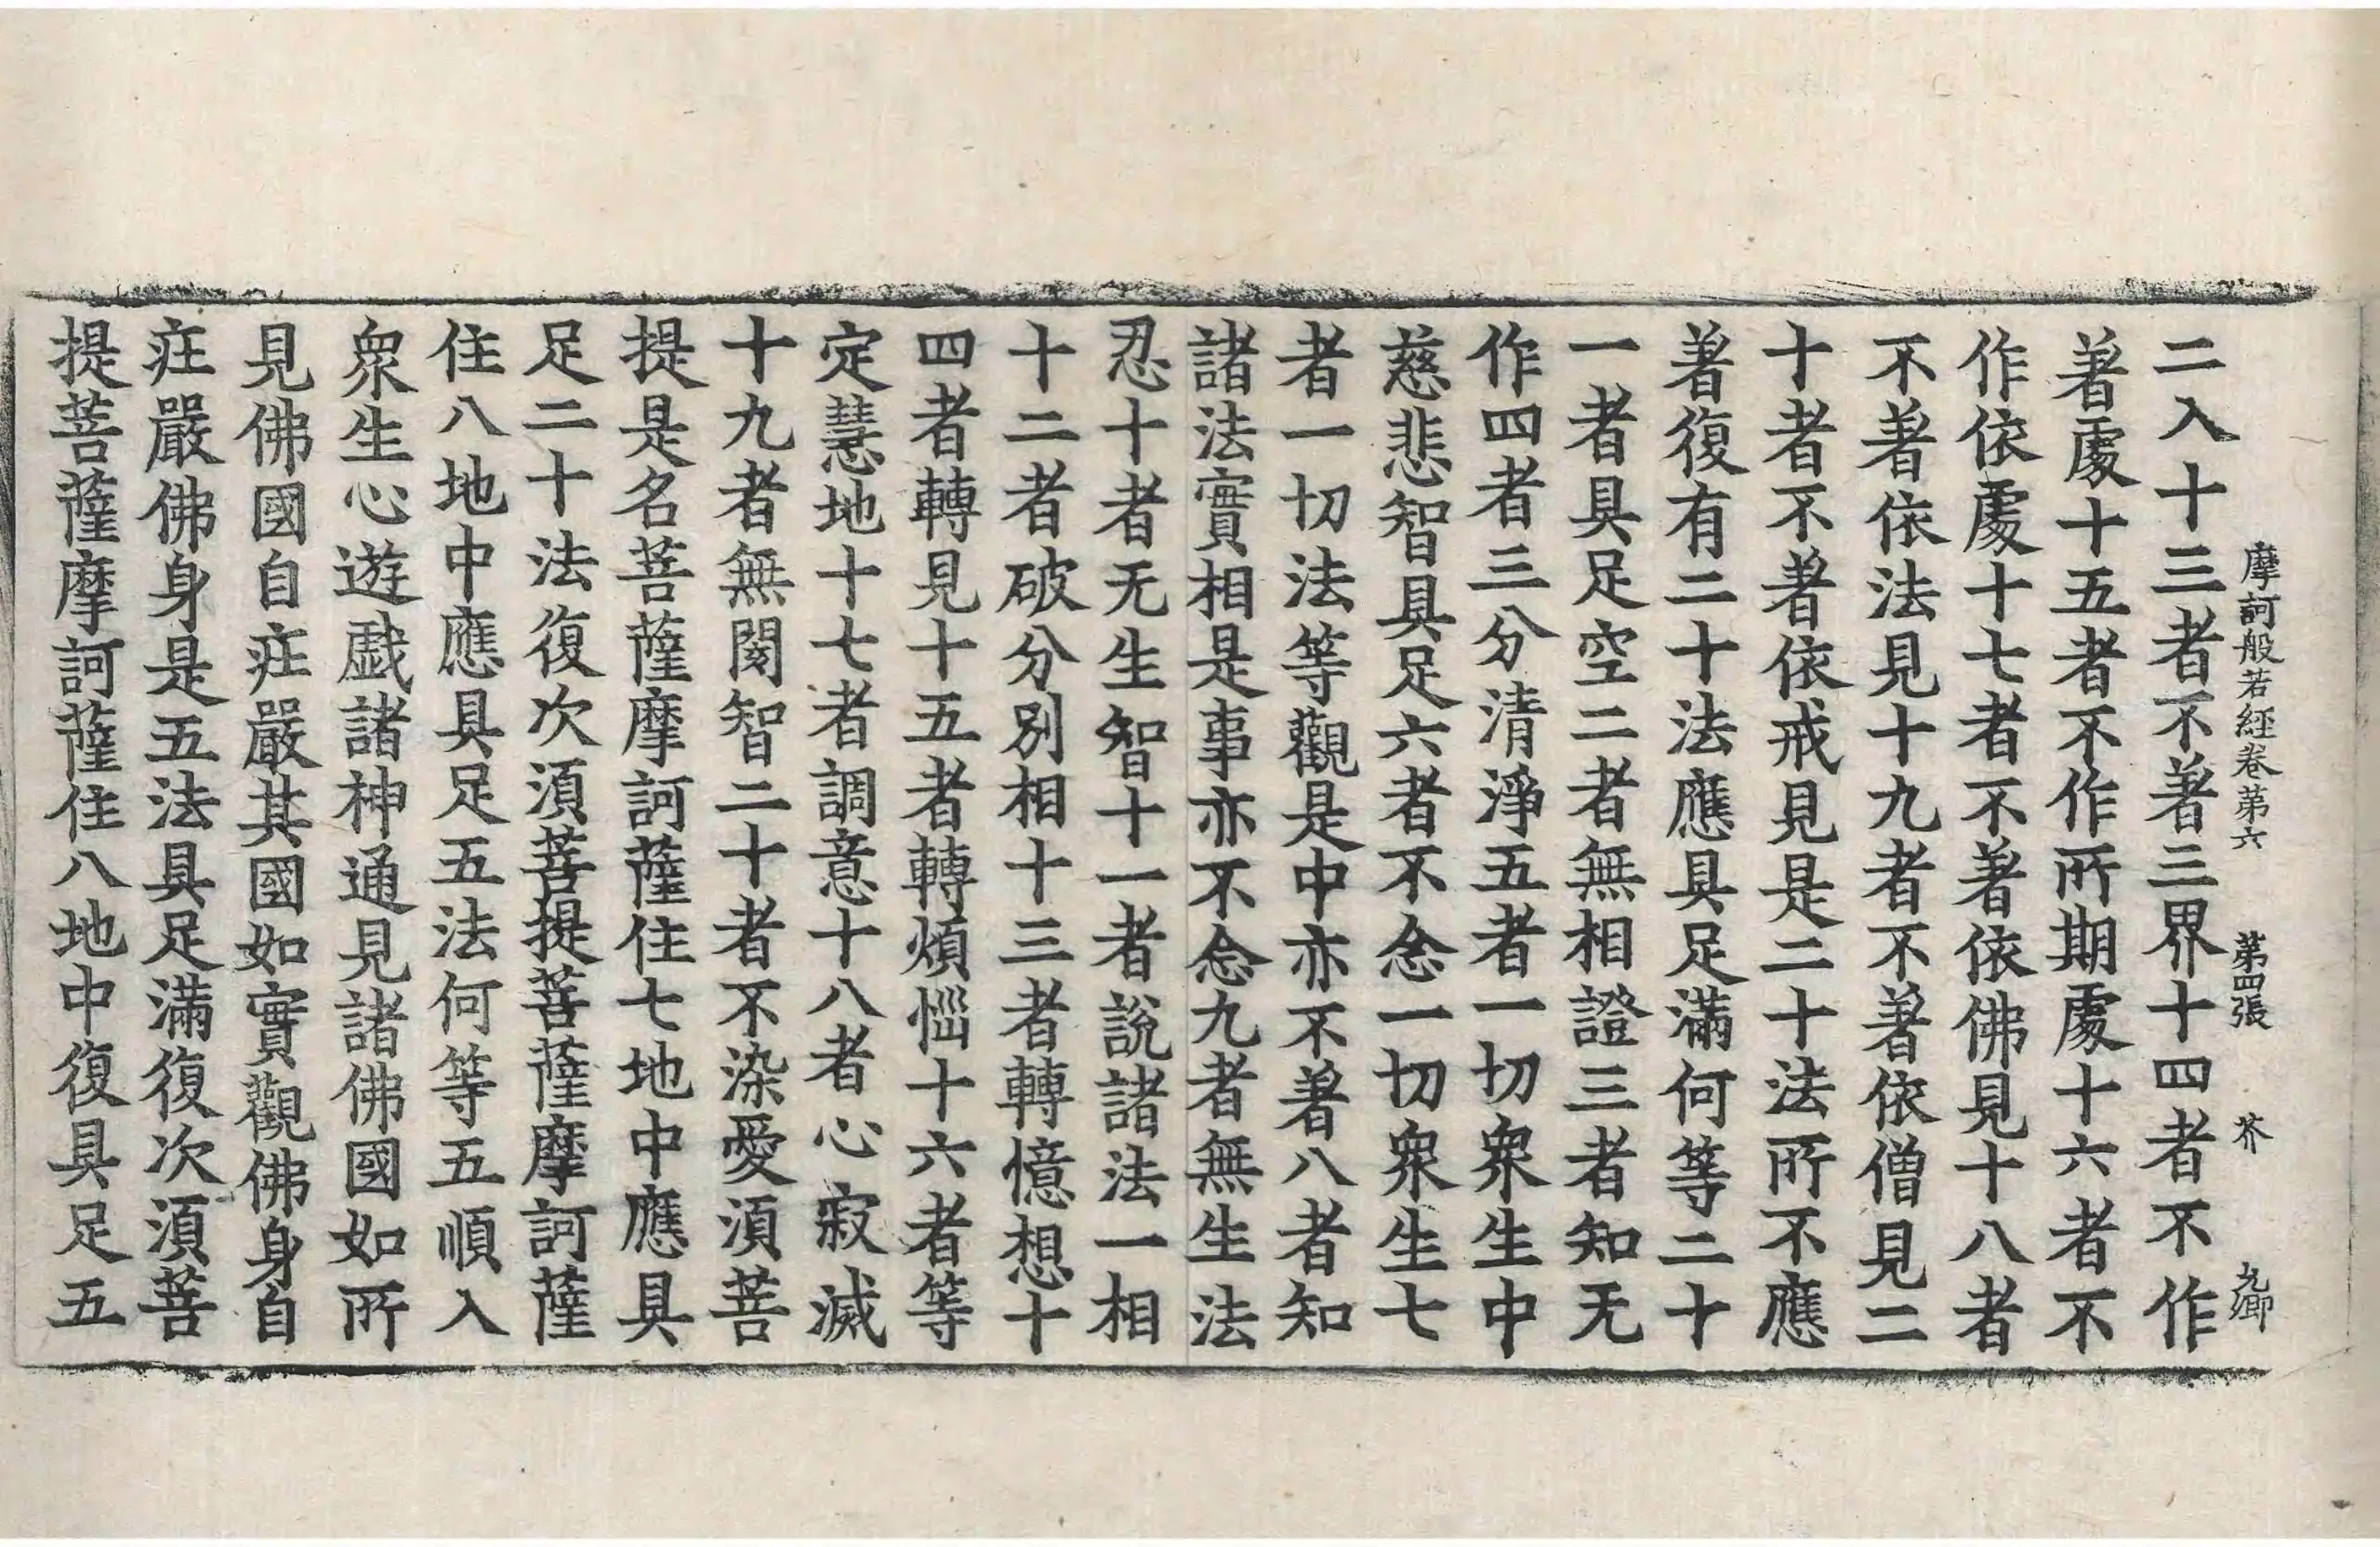 摩訶般若經卷第六 第四張 芥 九郷
二入十三者不著三界十四者不作
著處十五者不作所期處十六者不
作依處十七者不著依佛見十八者
不著依法見十九者不著依僧見二
十者不著依戒見是二十法所不應
著復有二十法應具足滿何等二十
一者具足空二者無相證三者知无
作四者三分清淨五者一切衆生中
慈悲智具足六者不念一切衆生七
者一切法等觀是中亦不著八者知
諸法實相是事亦不念九者無生法
忍十者无生智十一者說諸法一相
十二者破分別相十三者轉憶想十
四者轉見十五者轉煩惱十六者等
定慧地十七者調意十八者心寂滅
十九者無閡智二十者不染愛須菩
提是名菩薩摩訶薩住七地中應具
足二十法復次須菩提菩薩摩訶薩
住八地中應具足五法何等五順入
衆生心遊戲諸神通見諸佛國如所
見佛國自庄嚴其國如實觀佛身自
庄嚴佛身是五法具足滿復次須菩
提菩薩摩訶薩住八地中復具足五